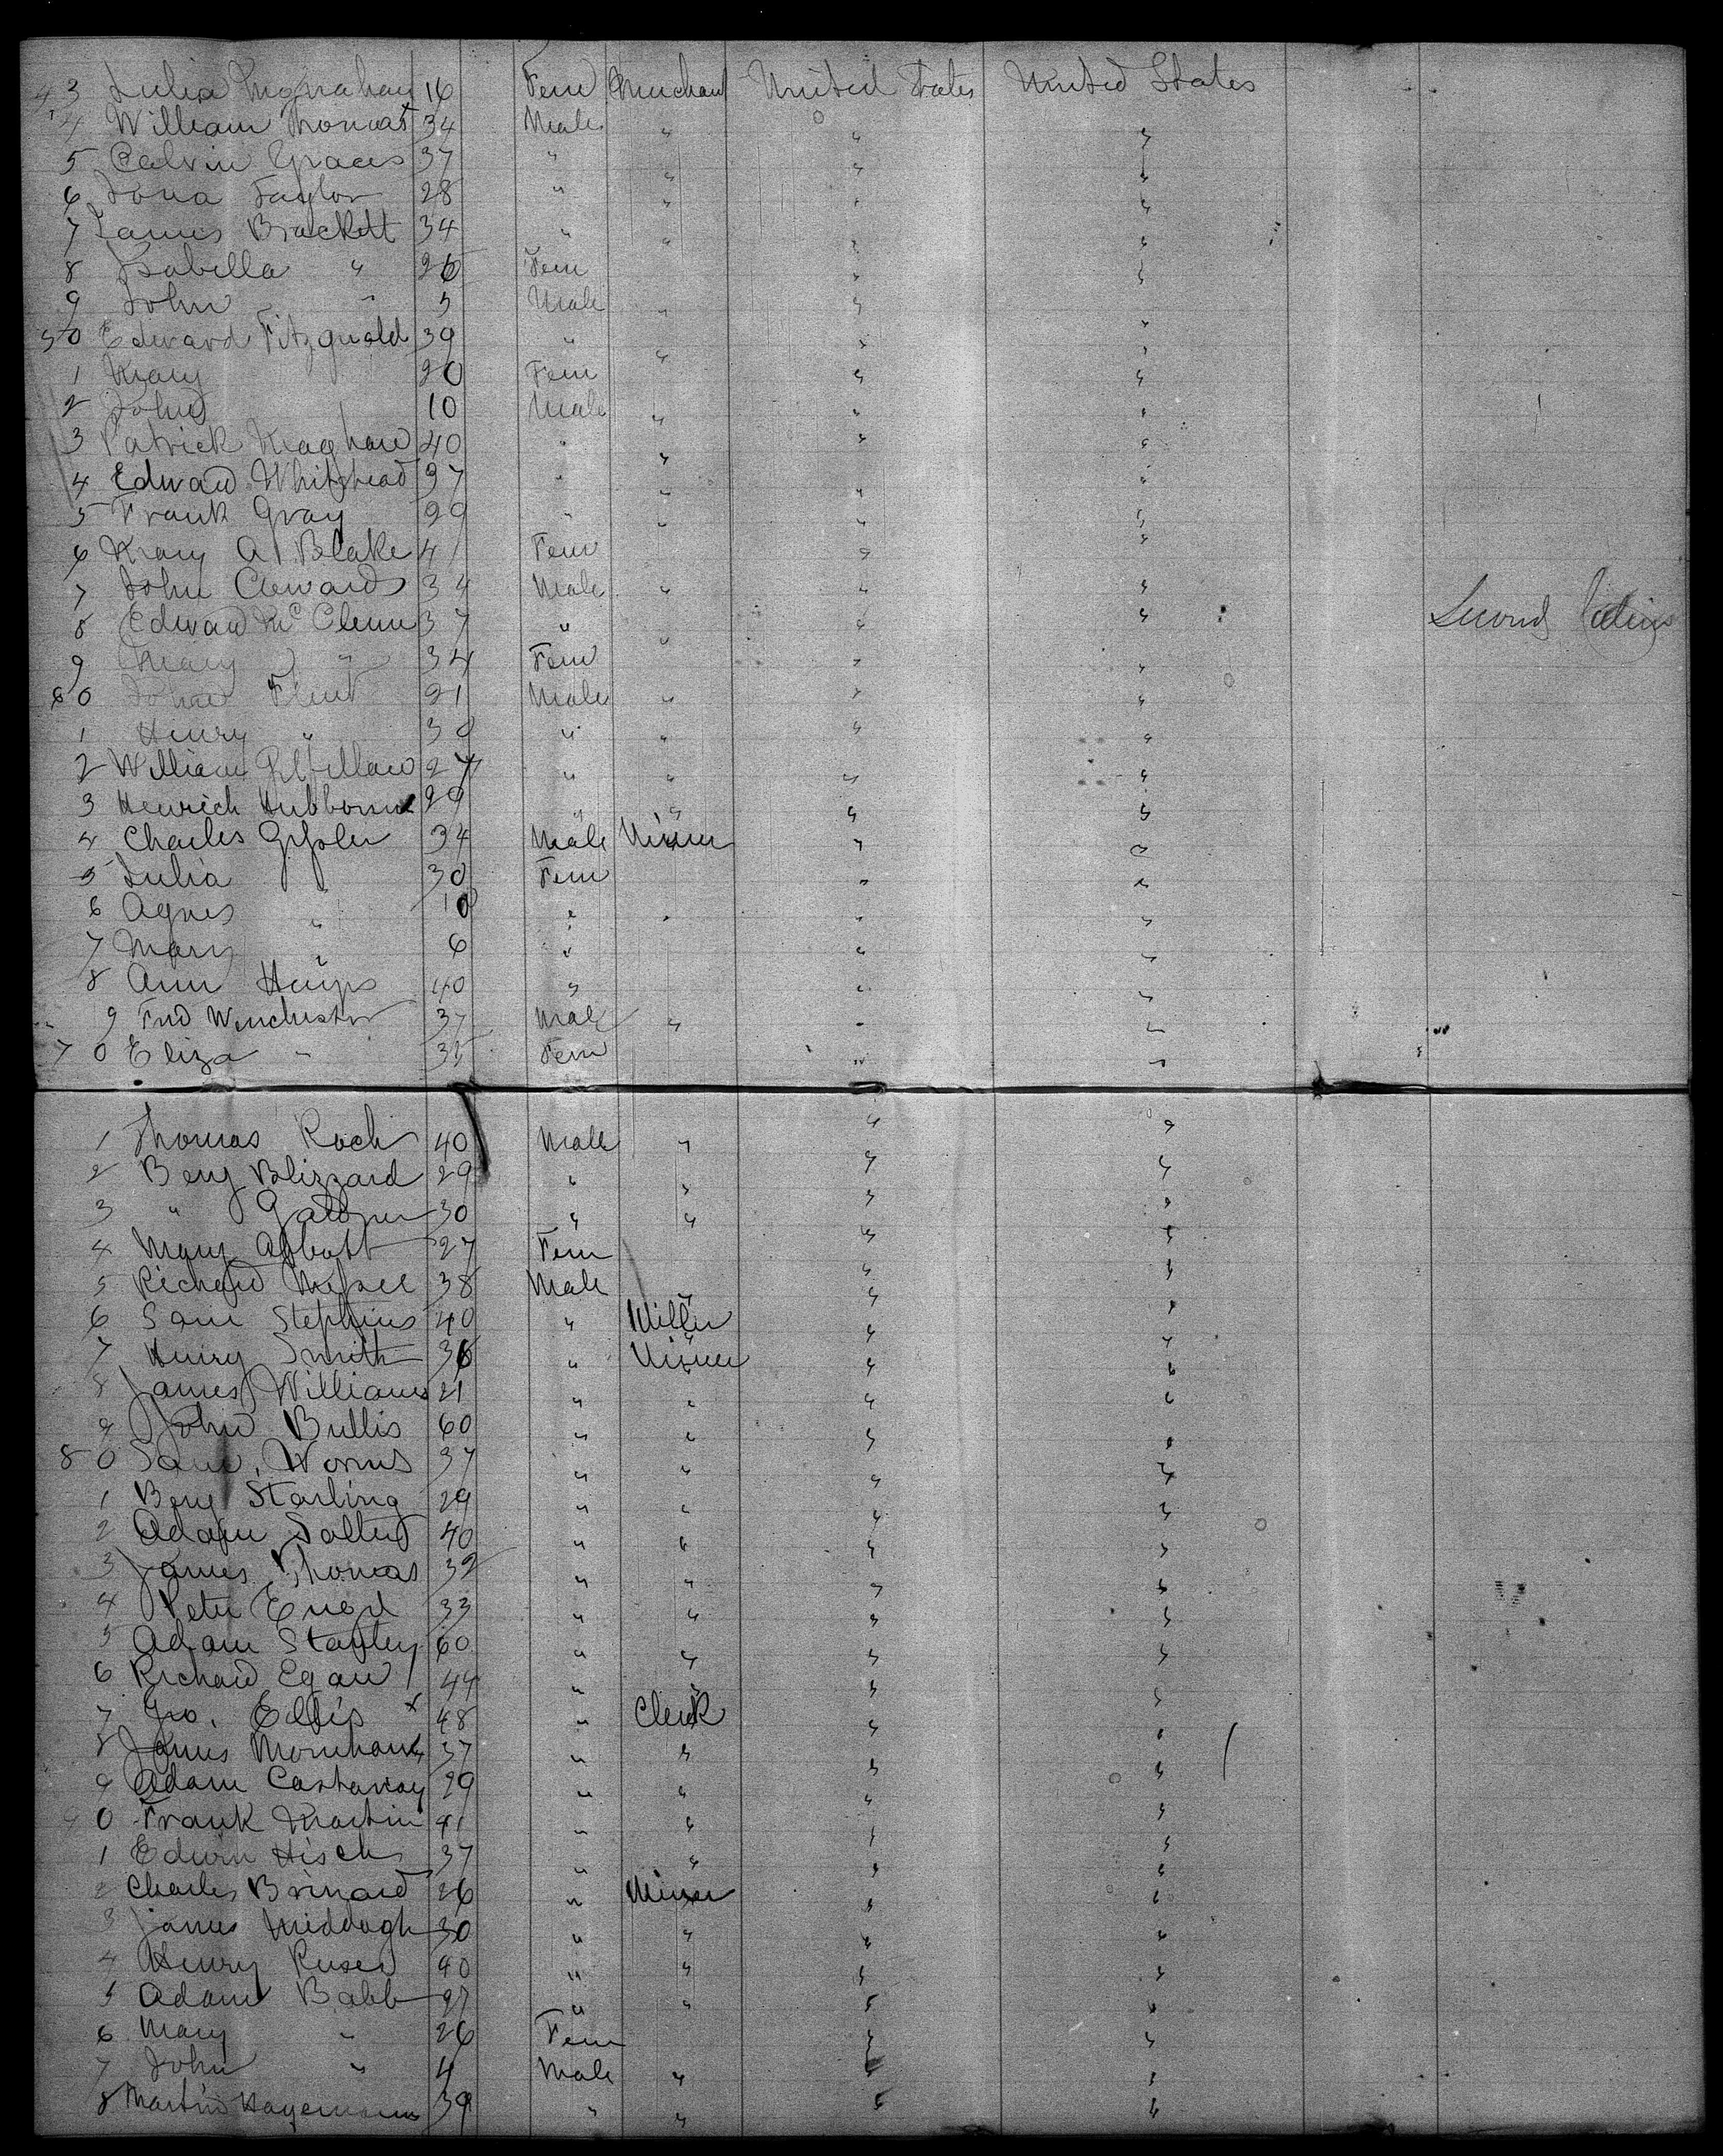 43 Julia 16 Fem Merchant United States United States
4 William Thomas 34 Male " " "
5 Calvin 37 " " " "
6 Taylor 28 " " " "
7 James Brackett 34 " " " "
8 Isabella " 26 Fem " "
9 John " 5 Male " " "
50 Edward Fitzgerald 39 " " " "
1 Mary 20 Fem " "
2 John 10 Male " " "
3 Patrick 40 " " " "
4 Edward Whitehead 37 " " " "
5 Frank Gray 29 " " " "
6 Mary A Blake 41 Fem " "
7 John 34 Male " " "
8 Edward McClenn 37 " " " " Second
9 Mary " 34 Fem " "
60 Flint 21 Male " " "
1 Henry " 30 " " " "
2 William 27 " " " "
3 Henrich 29 " " " "
4 Charles 34 Male Miner " "
5 Julia 30 Fem " "
6 Agnes " 10 " " " "
7 Mary " 6 " " "
8 Ann 40 " " "
9 Fred Winchester 37 Male " " "
70 Eliza " 35 Fem " "
1 Thomas Roch 40 Male " " "
2 Benj Blizzard 29 " " " "
3 " 30 " " " "
4 Mary Abbott 27 Fem " "
5 Richard 38 Male " " "
6 Sam Stephens 40 " Miller " "
7 Henry Smith 36 " Miner " "
8 James Williams 21 " " " "
9 John Bullis 60 " " " "
80 Sam. Worms 37 " " " "
1 Benj Starling 29 " " " "
2 Adam 40 " " " "
3 James Thomas 32 " " " "
4 Peter 33 " " " "
5 Adam Stanley 60 " " " "
6 Richard Egan 44 " " " "
7 Geo. Ellis x 48 " Clerk " "
8 James 37 " " " "
9 Adam Castaway 29 " " " "
90 Frank Martin 41 " " " "
1 Edwin Hisch 37 " " " "
2 Charles Brinard 26 " Miner " "
3 James Middagh 30 " " " "
4 Henry 40 " " " "
5 Adam Babb 27 " " " "
6 Mary " 26 Fem " "
7 John " 4 Male " " "
8 Martin 39 " " " "